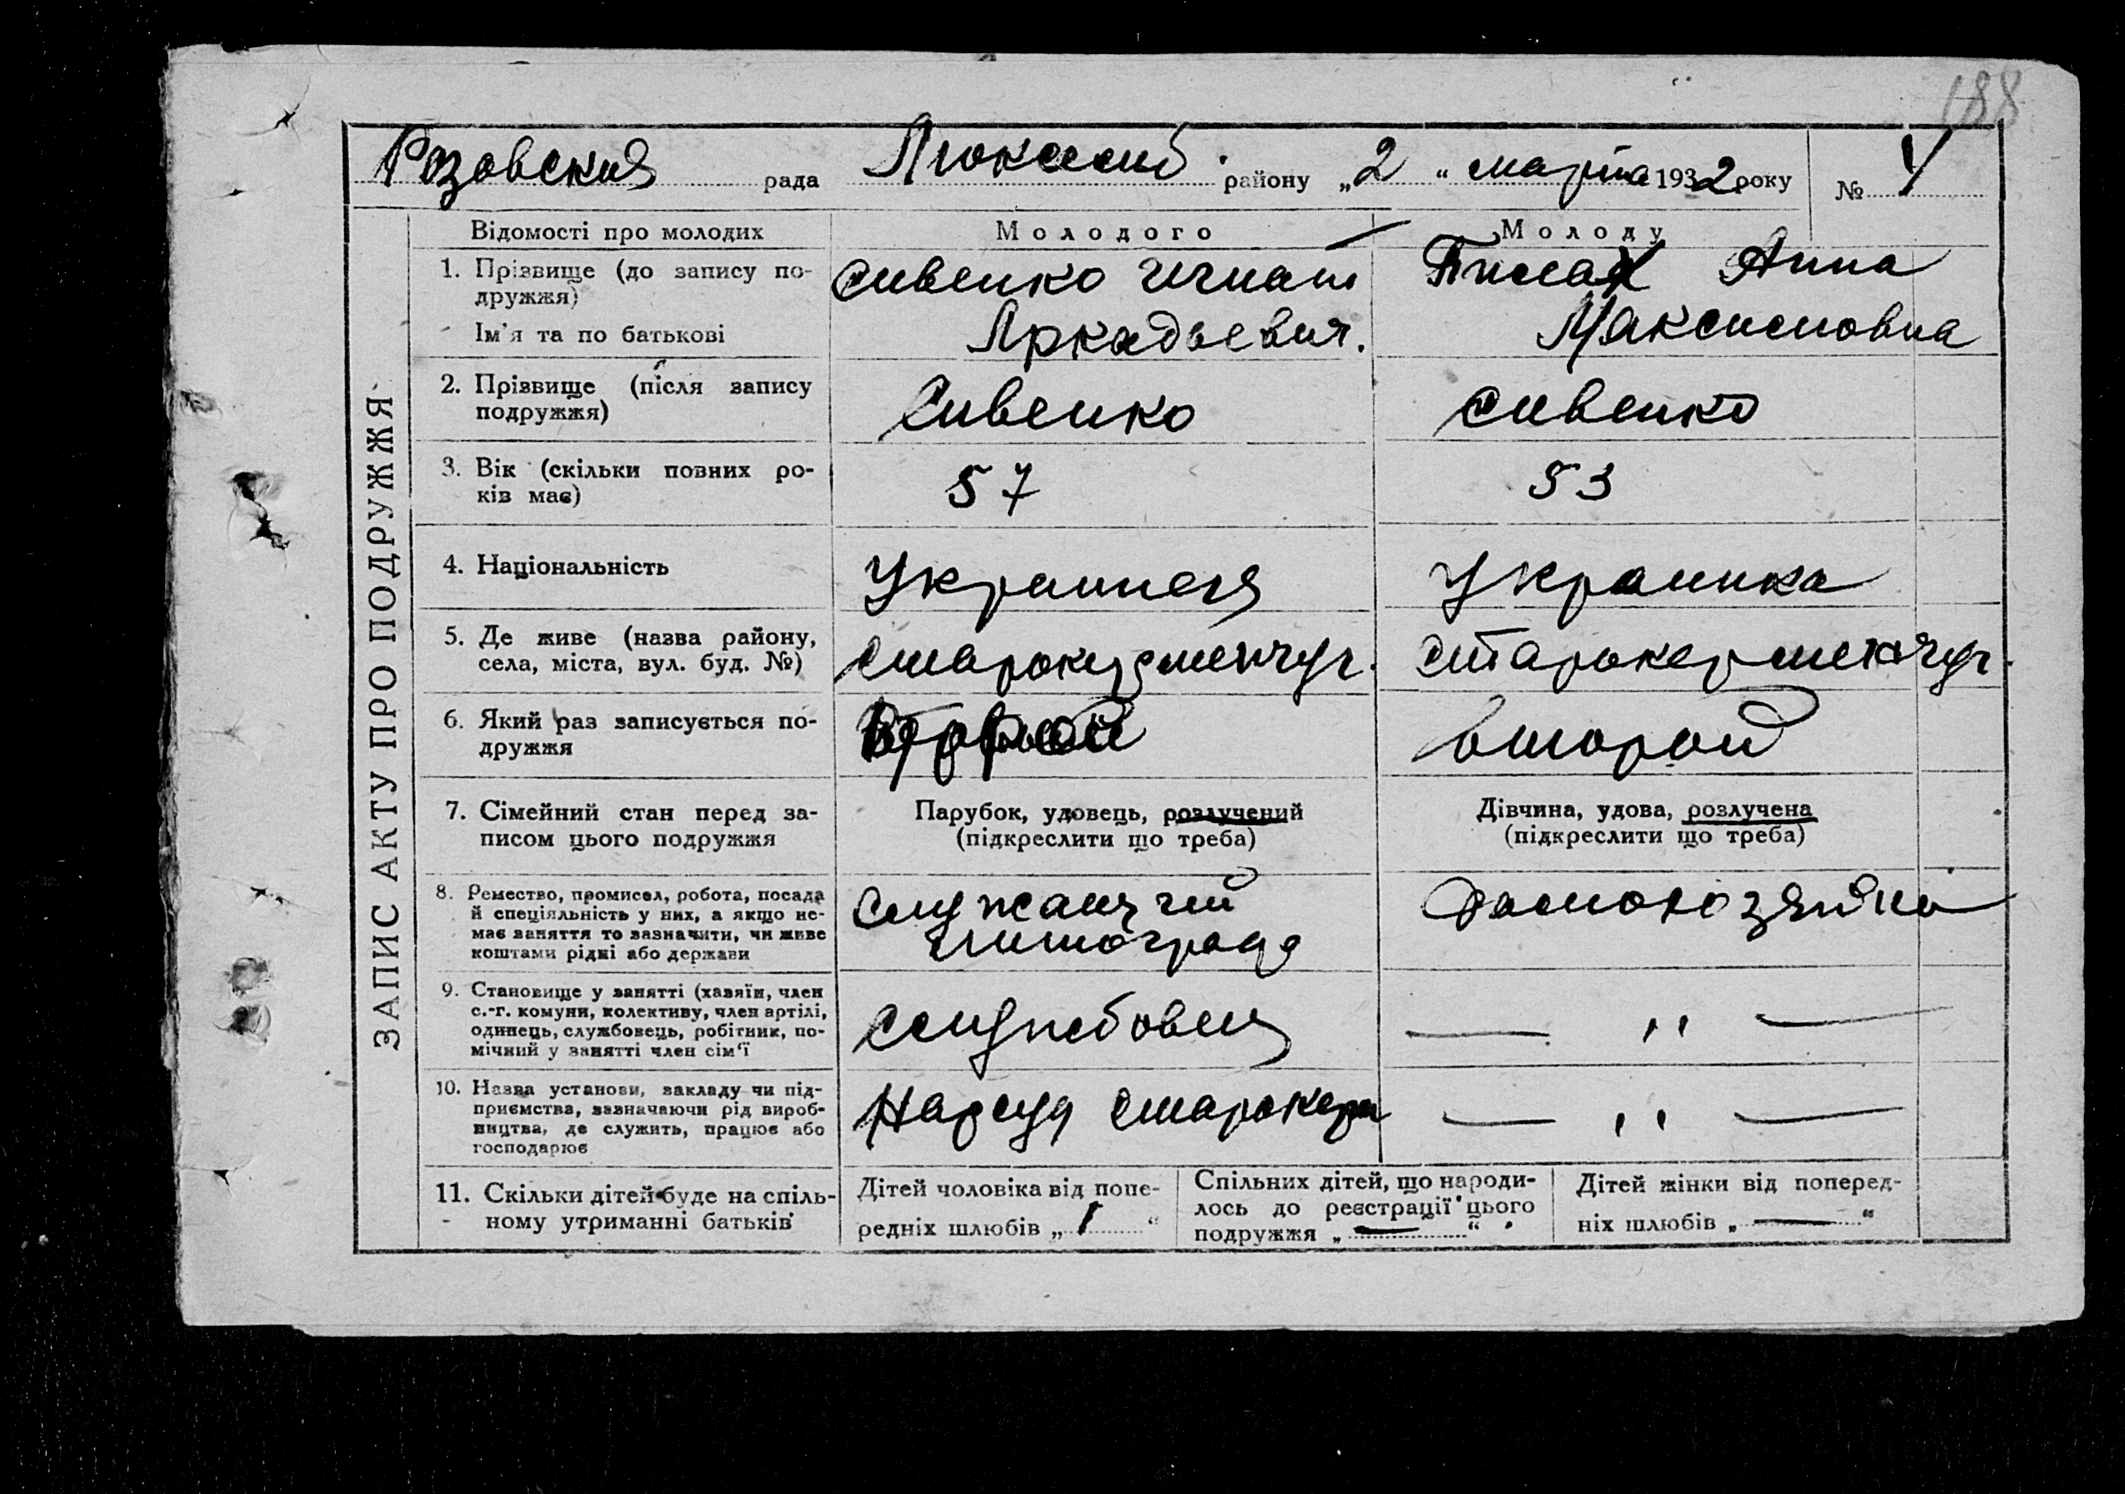 188
Розовская рада Люксемб. району „2“ марта 1932 року № 4
ЗАПИС АКТУ ПРО ПОДРУЖЖЯ
Відомості про молодих Молодого Молоду
1. Прізвище (до запису по-
дружжя)
Ім'я та по батькові
Сивенко Игнат
Аркадьевич.
Анна
Максимовна
2. Прізвище (після запису
подружжя)
Сивенко
Сивенко
3. Вік (скільки повних ро-
ків має)
57
53
4. Національність
Украинец
Украинка
5. Де живе (назва району,
села, міста, вул. буд. №)
Старокерменчуг.
Старокерменчуг.
6. Який раз записується по-
дружжя
Второй
второй
7. Сімейний стан перед за-
писом цього подружжя
Парубок, удовець, розлучений
(підкреслити що треба)
Дівчина, удова, розлучена
(підкреслити що треба)
8. Ремество, промисел, робота, посада
й спеціяльність у них, а якщо не-
має заняття то зазначити, чи живе
коштами рідні або держави
Служащий
Домохозяйка
9. Становище у занятті (хазяїн, член
с.-г. комуни, колективу, член артілі,
одинець, службовець, робітник, по-
мічний у занятті член сім'ї
Службовец
— „ —
10. Назва установи, закладу чи під-
приємства, зазначаючи рід вироб-
ництва, де служить, працює або
господарює
Нарсуд Старокерм
— „ —
11. Скільки дітей буде на спіль-
ному утриманні батьків
Дітей чоловіка від попе-
редніх шлюбів „1“
Спільних дітей, що народи-
лось до реєстрації цього
подружжя „—“
Дітей жінки від поперед-
ніх шлюбів „—“